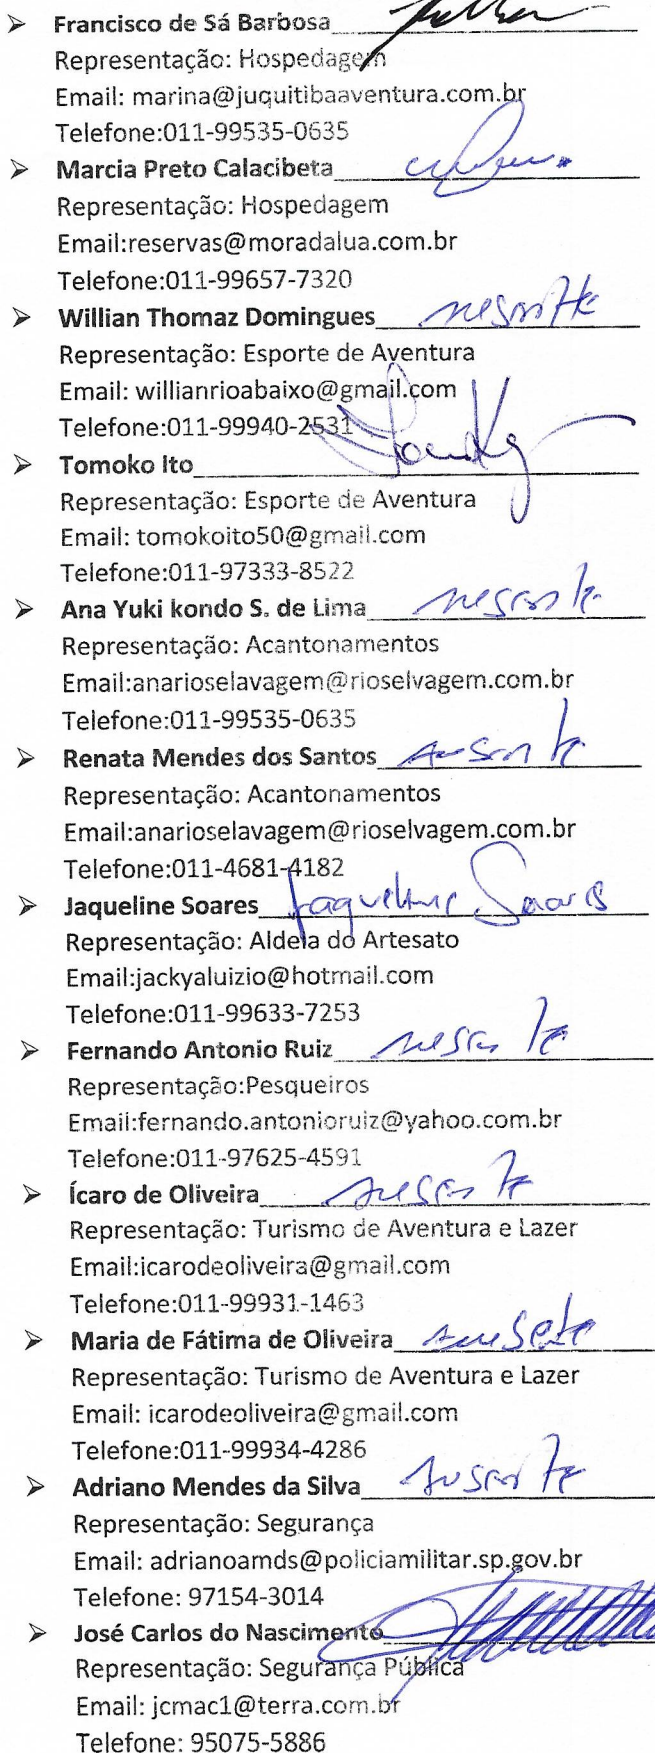 ➤ Francisco de Sá Barbosa
Representação: Hospedagem
Email: marina@juquitibaaventura.com.br
Telefone:011-99535-0635
➤ Marcia Preto Calacibeta
Representação: Hospedagem
Email:reservas@moradalua.com.br
Telefone:011-99657-7320
➤ Willian Thomaz Domingues ausente
Representação: Esporte de Aventura
Email: willianrioabaixo@gmail.com
Telefone:011-99940-2531
➤ Tomoko Ito
Representação: Esporte de Aventura
Email: tomokoito50@gmail.com
Telefone:011-97333-8522
➤ Ana Yuki kondo S. de Lima ausente
Representação: Acantonamentos
Email:anarioselavagem@rioselvagem.com.br
Telefone:011-99535-0635
➤ Renata Mendes dos Santos ausente
Representação: Acantonamentos
Email:anarioselavagem@rioselvagem.com.br
Telefone:011-4681-4182
➤ Jaqueline Soares Jaqueline Soares
Representação: Aldeia do Artesato
Email:jackyaluizio@hotmail.com
Telefone:011-99633-7253
➤ Fernando Antonio Ruiz ausente
Representação:Pesqueiros
Email:fernando.antonioruiz@yahoo.com.br
Telefone:011-97625-4591
➤ Ícaro de Oliveira ausente
Representação: Turismo de Aventura e Lazer
Email:icarodeoliveira@gmail.com
Telefone:011-99931-1463
➤ Maria de Fátima de Oliveira ausente
Representação: Turismo de Aventura e Lazer
Email: icarodeoliveira@gmail.com
Telefone:011-99934-4286
➤ Adriano Mendes da Silva ausente
Representação: Segurança
Email: adrianoamds@policiamilitar.sp.gov.br
Telefone: 97154-3014
➤ José Carlos do Nascimento
Representação: Segurança Pública
Email: jcmac1@terra.com.br
Telefone: 95075-5886